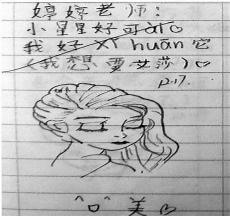 婷婷老师：
小星星好可ài
我好xǐ huān它
(我想要艾莎)
12.17.
^口^ 美